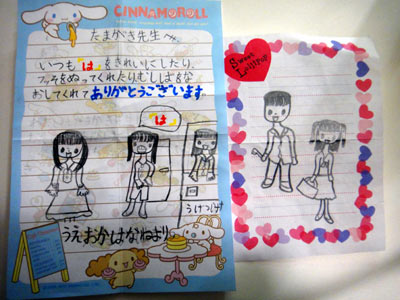 CINNAMOROLL
たまがき先生へ
いつも「は」をきれいにしたり、
フッそをぬってくれたりむしばをな
おしてくれてありがとうございます
「は」
うけつけ
うえおかはなねより
Sweet
Lollipop